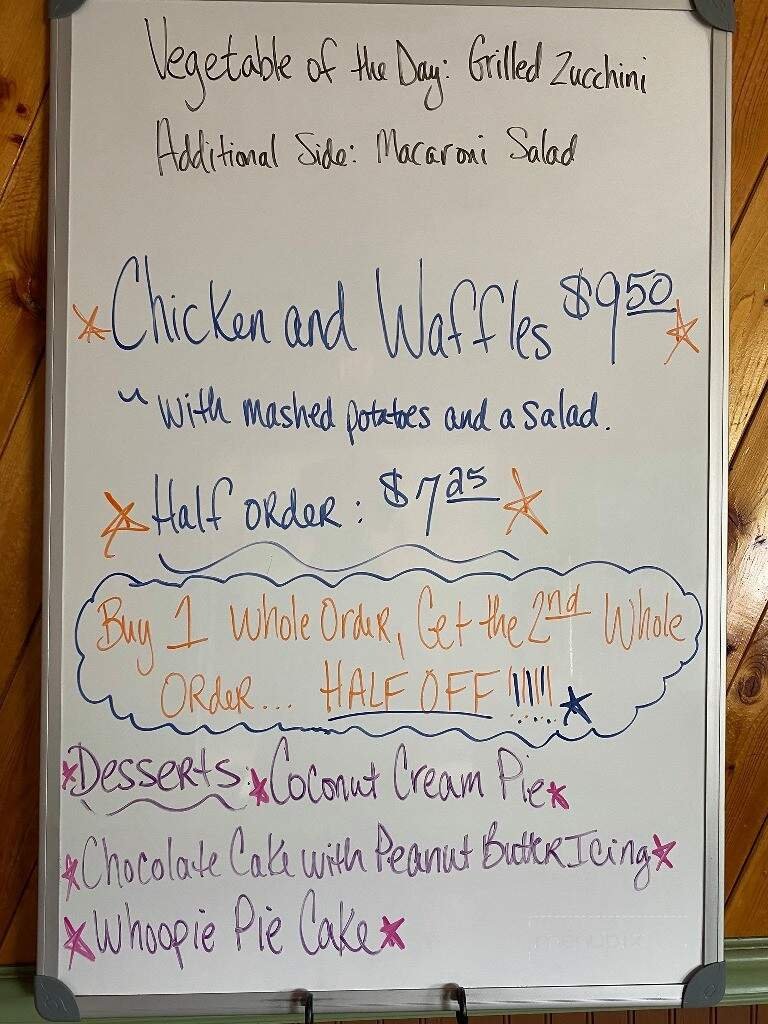 Vegetable of the Day: Grilled Zucchini
Additional Side: Macaroni Salad
Chicken and Waffles $9.50
with mashed potatoes and a salad.
Half order: $7.25
Buy 1 Whole Order, Get the 2nd Whole
Order... HALF OFF !!!!!
Desserts: Coconut Cream Pie
Chocolate Cake with Peanut Butter Icing
Whoopie Pie Cake